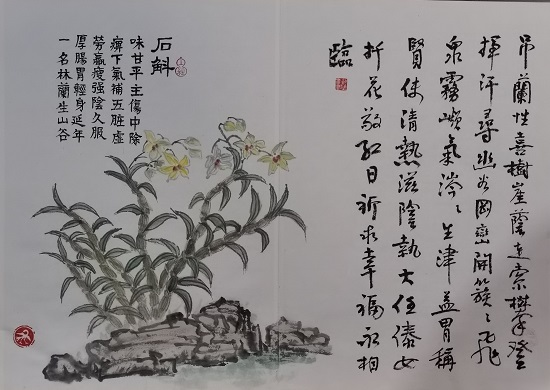 吊蘭性喜樹崖蔭連索攀登
揮汗尋幽谷岡巒開簇々飛
泉霧嶼氣涔々生津益胃稱
賢使清熱滋陰執大任傣女
折花敬紅日祈求幸福永相
臨
石斛
味甘平主傷中除
痹下氣補五脏虛
勞羸瘦强陰久服
厚腸胃輕身延年
一名林蘭生山谷